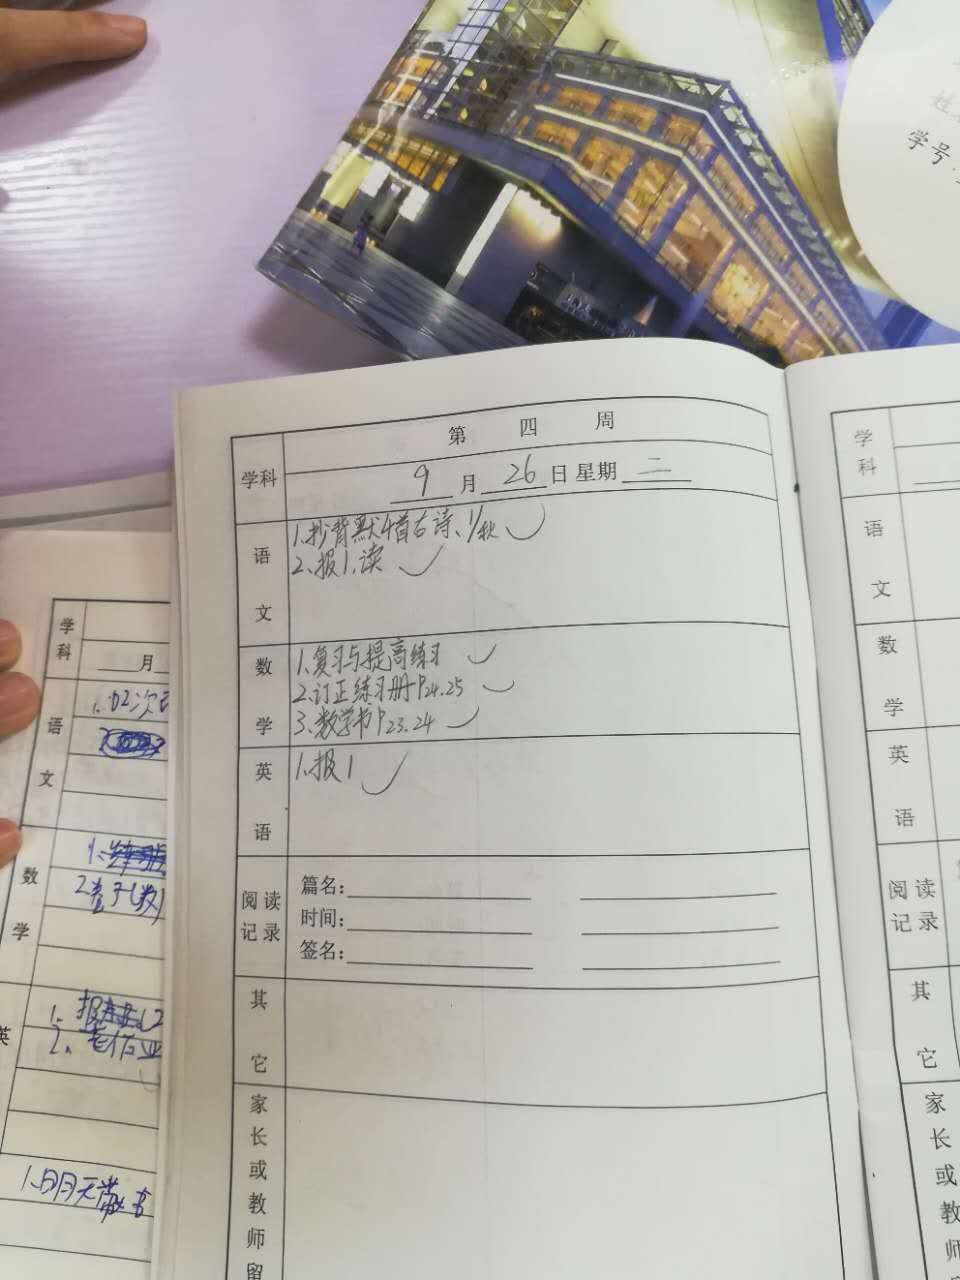 姓
学号
第 四 周
学科
9月26日 星期二
语文
1.抄背默4首古诗、1/秋
2、报1、读
数学
1、复习与提高练习
2、订正练习册P24.25
3、数学书P23.24
英语
1、报1
阅读记录
篇名：
时间：
签名：
其它
家长或教师留
学科
月
语文
数学
英
1.明天带书
学科
语文
数学
英语
阅读记录
其它
家长或教师